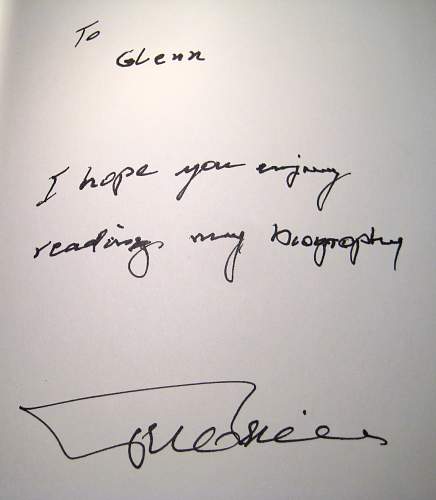 To
Glenn
I hope you enjoy
reading my biography